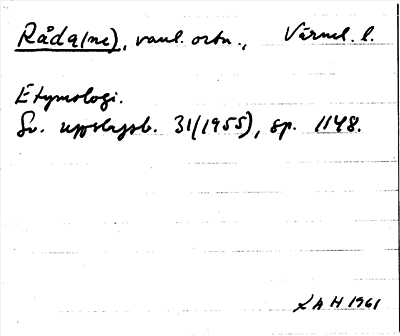 Råda(ne), vanl. ortn., Värml. l.
Etymologi.
Sv. uppslagsb. 31(1955), sp. 1148.
L A H 1961